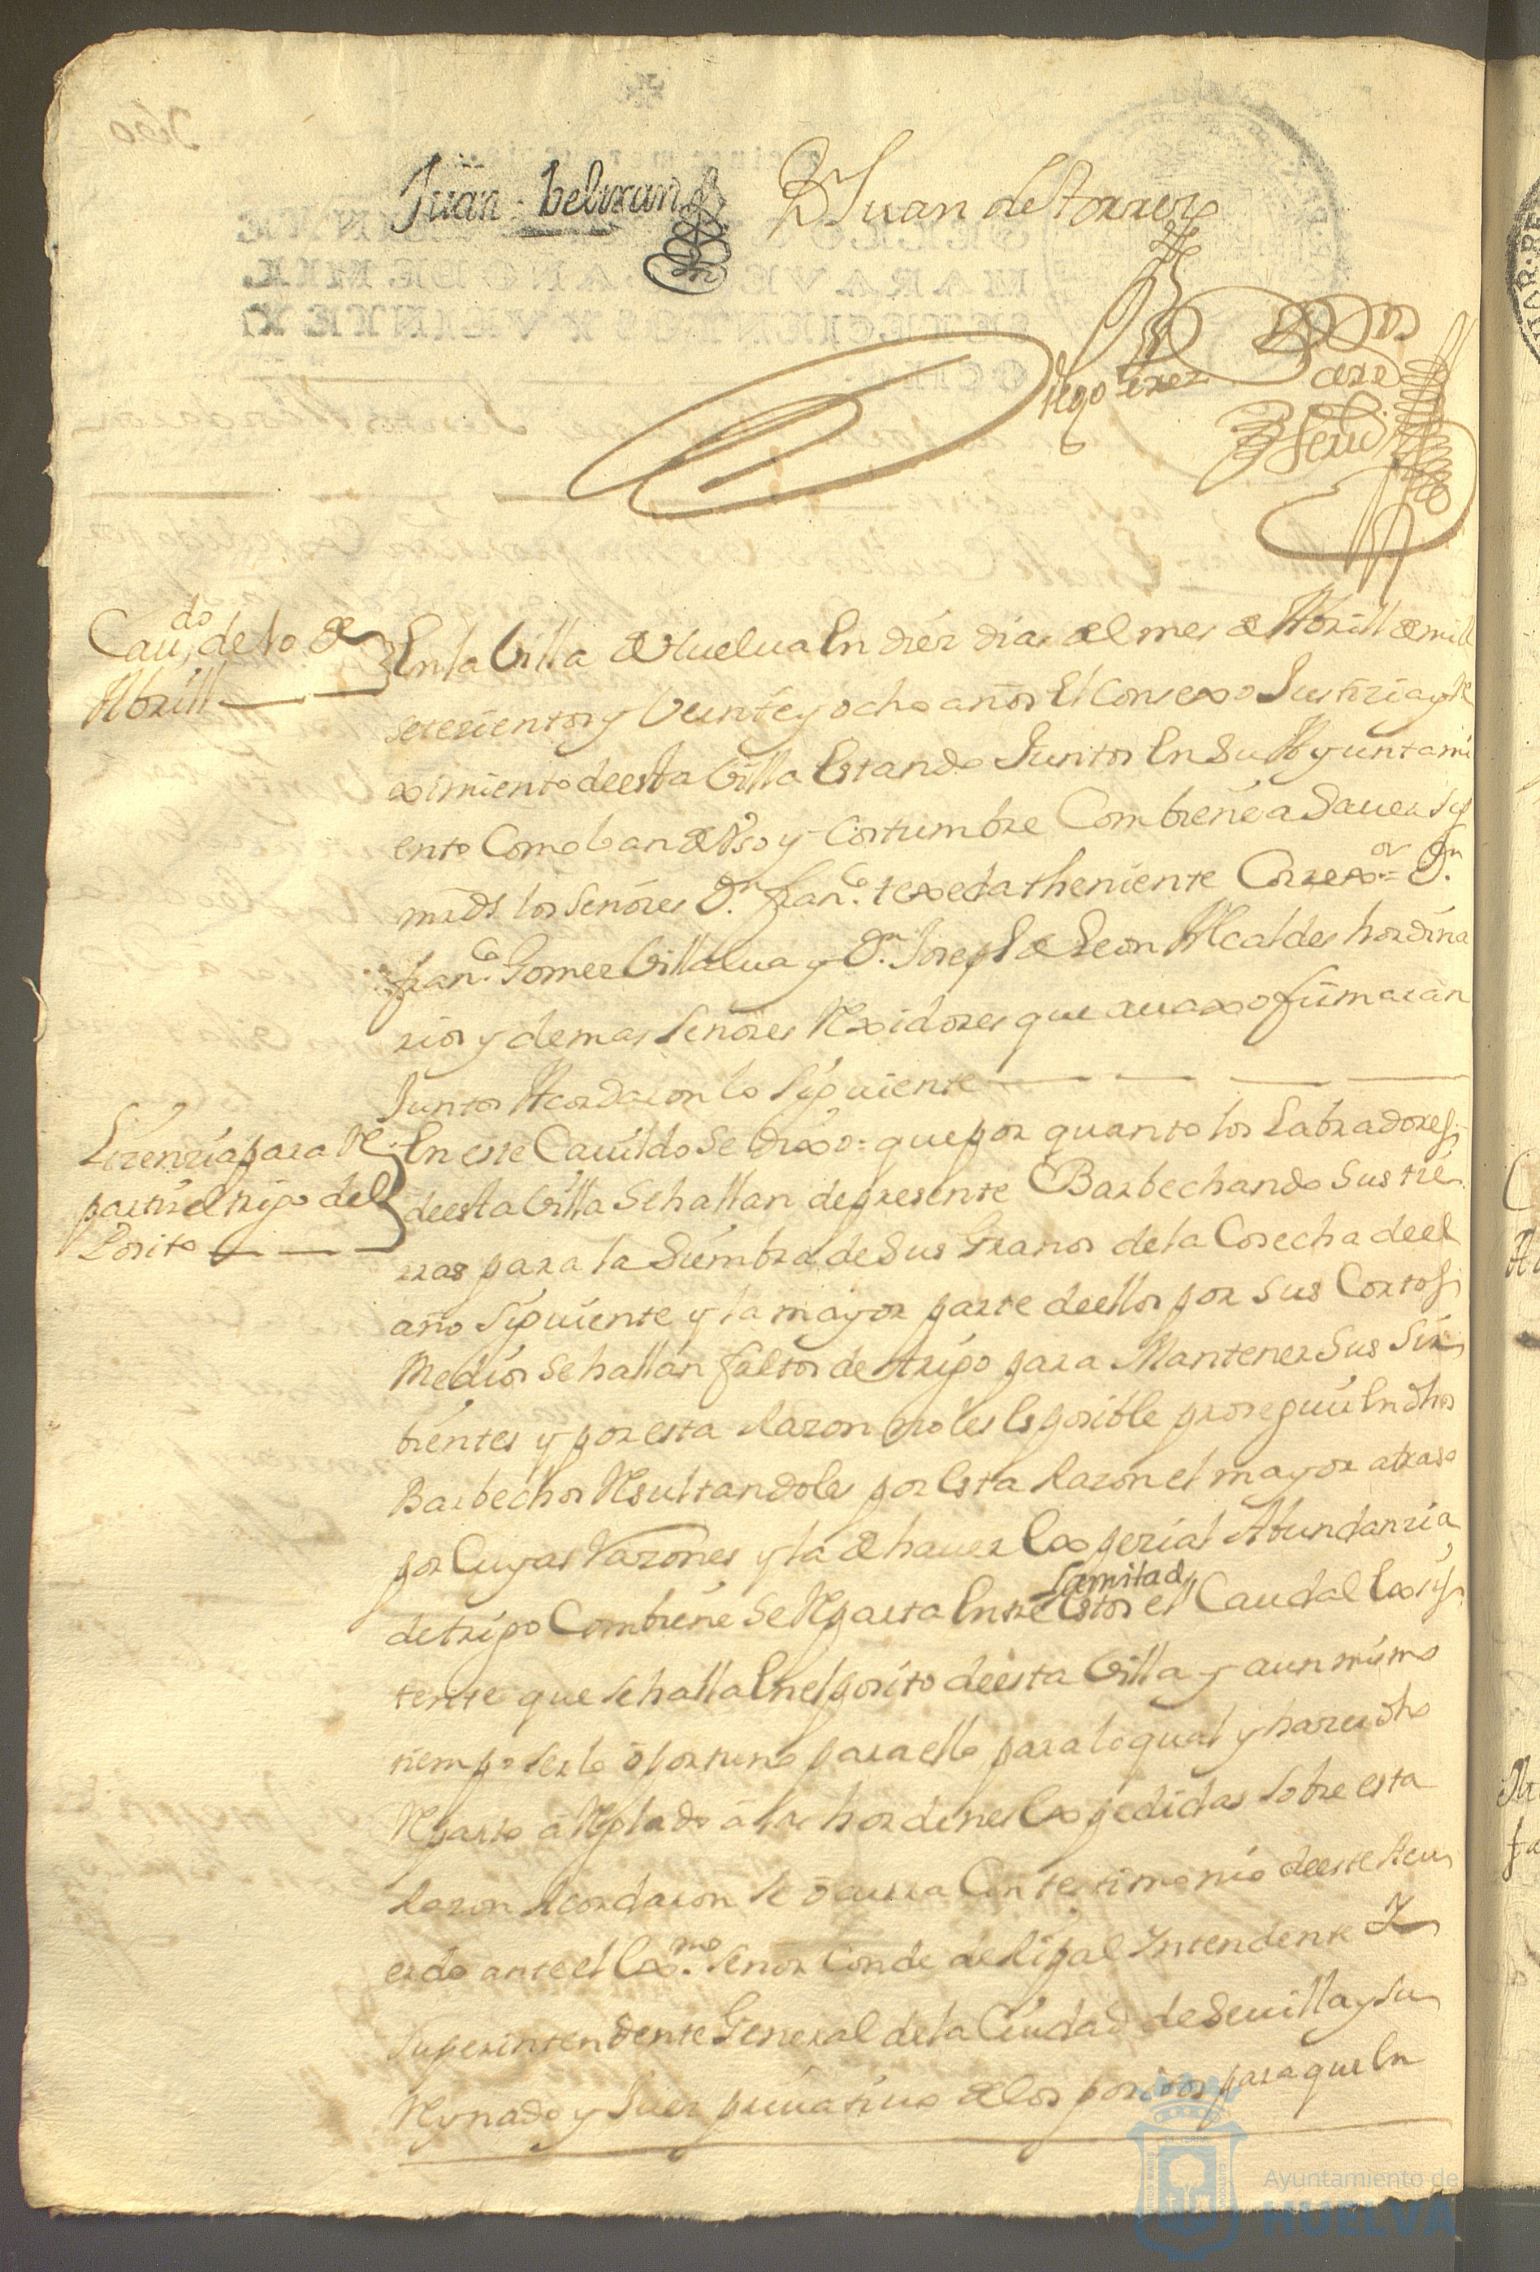 Juan beltran D Juan de torres
Diego Perez
Caui.do de 10 de
Abrill
En la Villa de Huelua En diez dias del mes de Abrill de mill
setezientos y Veinte y ocho años El Consexo Justizia y Re
ximiento de esta Villa Estando Juntos En Su Ayuntami
ento Como lo an de Vso y Costumbre Combiene a Sauer Su
mrds los Señores D.n Fran.co texeda theniente Correx.or = D.n
Fran.co Gomez Villalua y D.n Joseph de Leon Alcaldes hordina
rios y demas Señores Rexidores que auaxo firmaran
Juntos Acordaron lo Siguiente
Lizenzia para Re
partir el trigo del
Posito
En este Cauildo Se dixo = que por quanto los Labradores
de esta Villa Se hallan de presente Barbechando Sus tie
rras para la Siembra de Sus Granos de la Cosecha de el
año Siguiente y la mayor parte de ellos por Sus Cortos
Medios Se hallan faltos de trigo para Mantener Sus Sir
bientes y por esta Razon no les Es posible proseguir En dhos
Barbechos Resultandoles por Esta Razon el mayor atraso
por Cuyas Razones y la de hauer Espezial Abundanzia
de trigo Combiene Se Reparta Entre Estos el Caudal Exis
la mitad
tente que Se halla En el posito de esta Villa y a un mismo
tiempo Ser lo oportuno para ello para lo qual y hazer dho
Reparto arreglado a las hordenes Expedidas Sobre esta
Razon Acordaron Se ocurra Con testimonio de este Acu
erdo ante el Ex.mo Señor Conde de Ripal Yntendente Y
Superintendente General de la Ciudad de Seuilla y Su
Reynado y Juez priuatiuo de los positos para que En
Ayuntamiento de
HUELVA